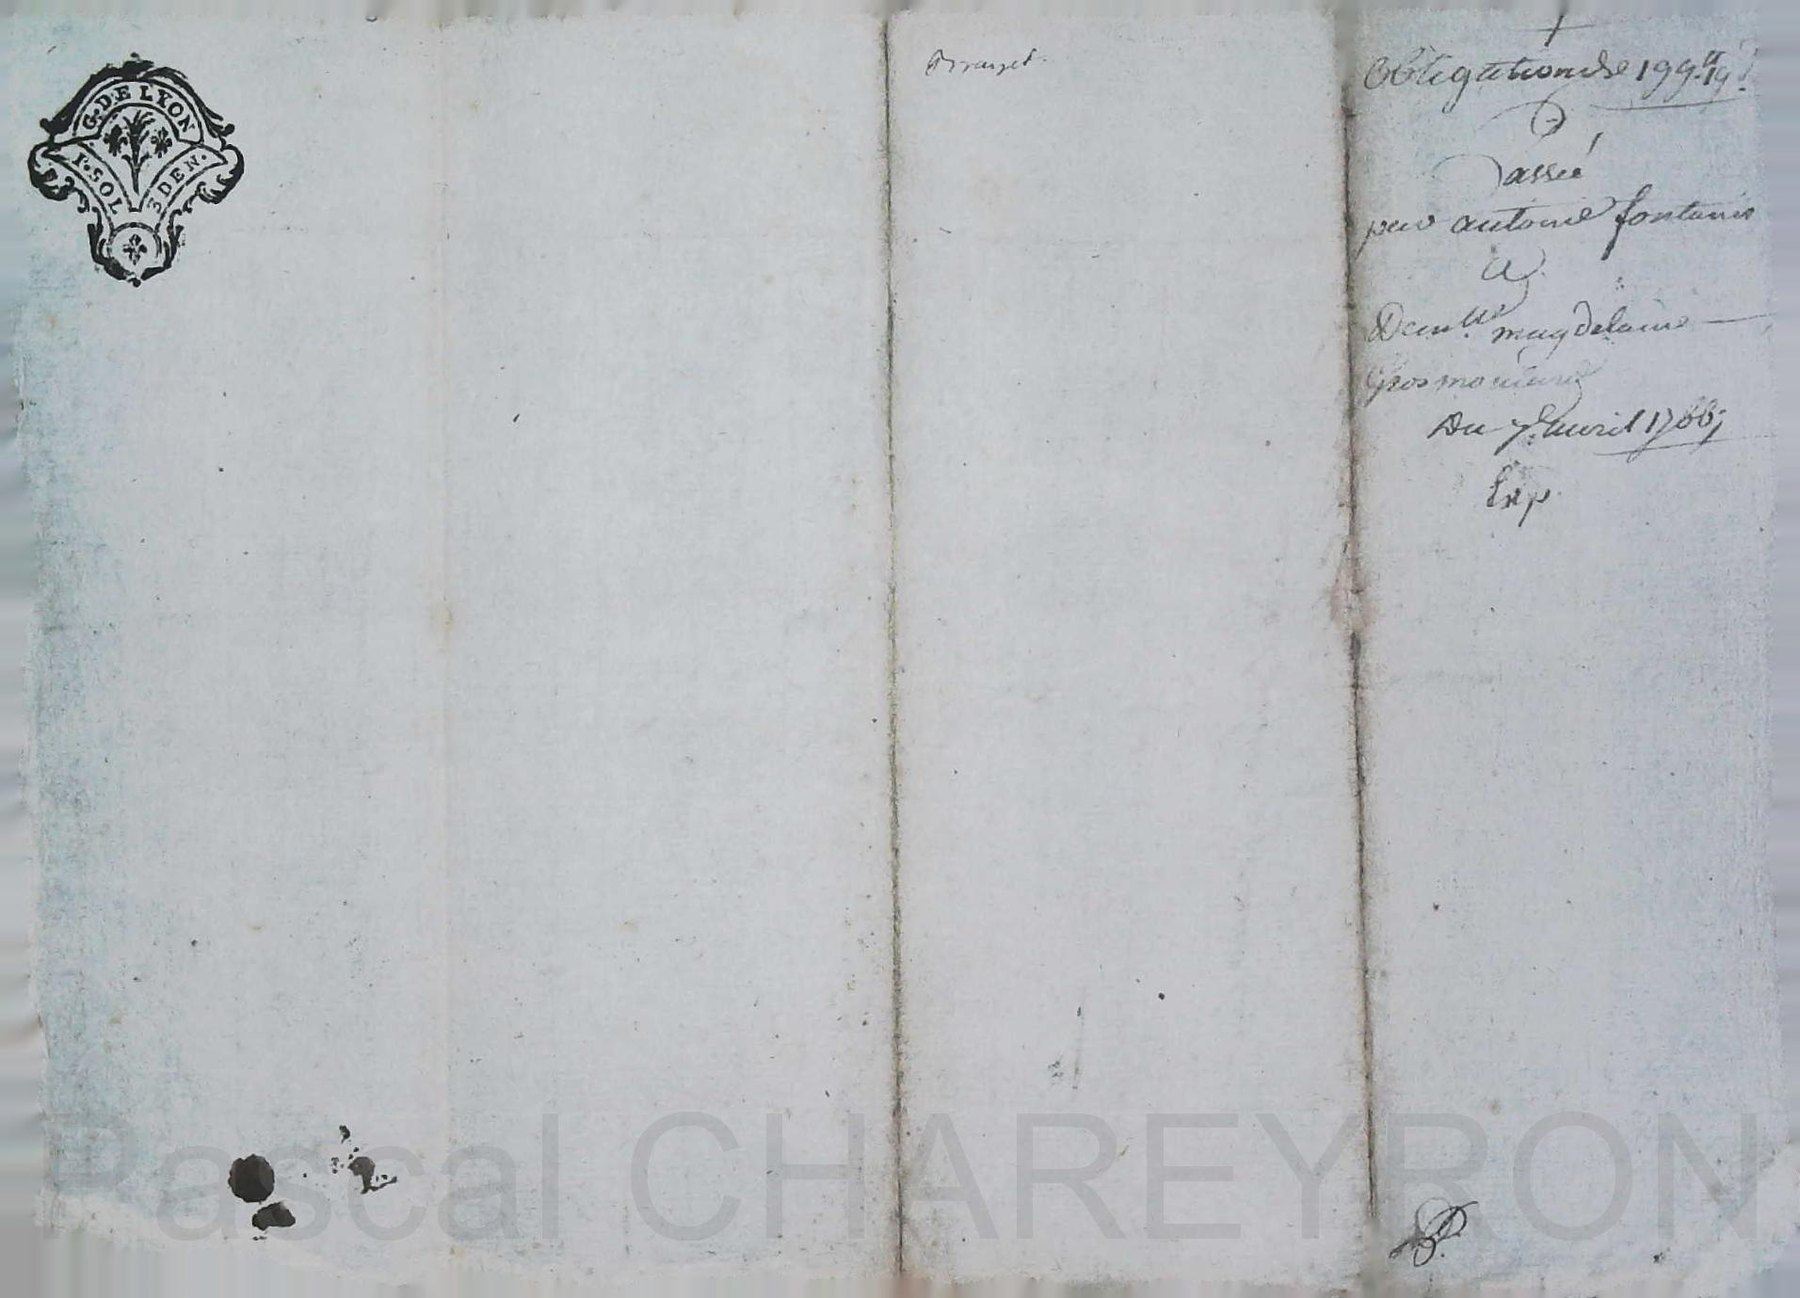 G. DE LYON
1. SOL 3 DEN.
+
Obligation de 199.tt 19 s
Passée
par antoine fontanis
a
Dem.lle magdelaine
Grosmoniere
Du 7.e avril 1766;
Exp.
Pascal CHAREYRON